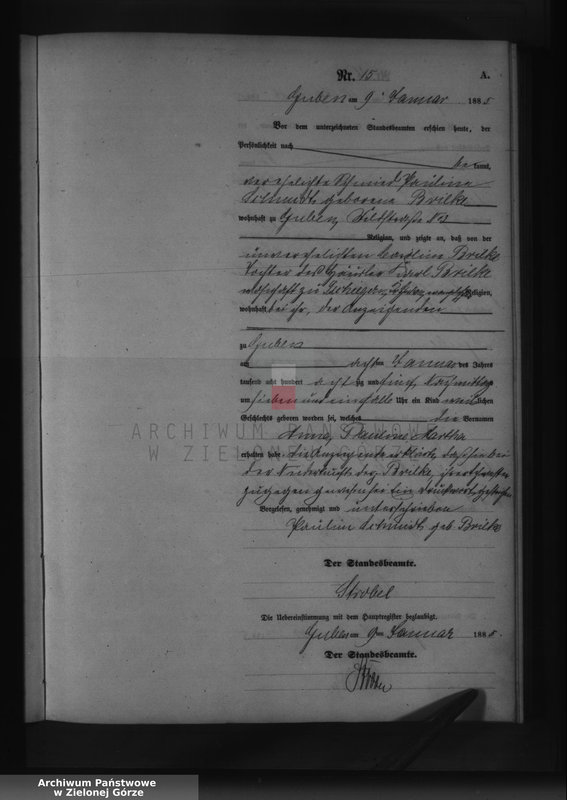 Nr. 15.
A.
Guben am 9. Januar 1885
Vor dem unterzeichneten Standesbeamten erschien heute, der
Persönlichkeit nach
be kannt,
verehelichte Schmied Pauline
Schmidt geborene Brilke
wohnhaft zu Guben,
Religion, und zeigte an, daß von der
unverehelichten Caroline Brilke
Tochter des Häusler Karl Brilke
Religion,
wohnhaft bei ihr, der Anzeigenden
zu Guben
am achten Januar des Jahres
tausend acht hundert achtzig und fünf, Nachmittags
um sieben und einhalb Uhr ein Kind weiblichen
Geschlechts geboren worden sei, welches die Vornamen
Anna Pauline Martha
erhalten habe. Die Anzeigende erklärt, daß sie bei
der Niederkunft der Brilke
zugegen gewesen sei. Ein Druckwort gestrichen
Vorgelesen, genehmigt und unterschrieben
Pauline Schmidt geb Brilke
Der Standesbeamte.
Strobel
Die Uebereinstimmung mit dem Hauptregister beglaubigt.
Guben am 9ten Januar 1885.
Der Standesbeamte.
ARCHIWUM PAŃSTWOWE
W ZIELONEJ GÓRZE
Archiwum Państwowe
w Zielonej Górze